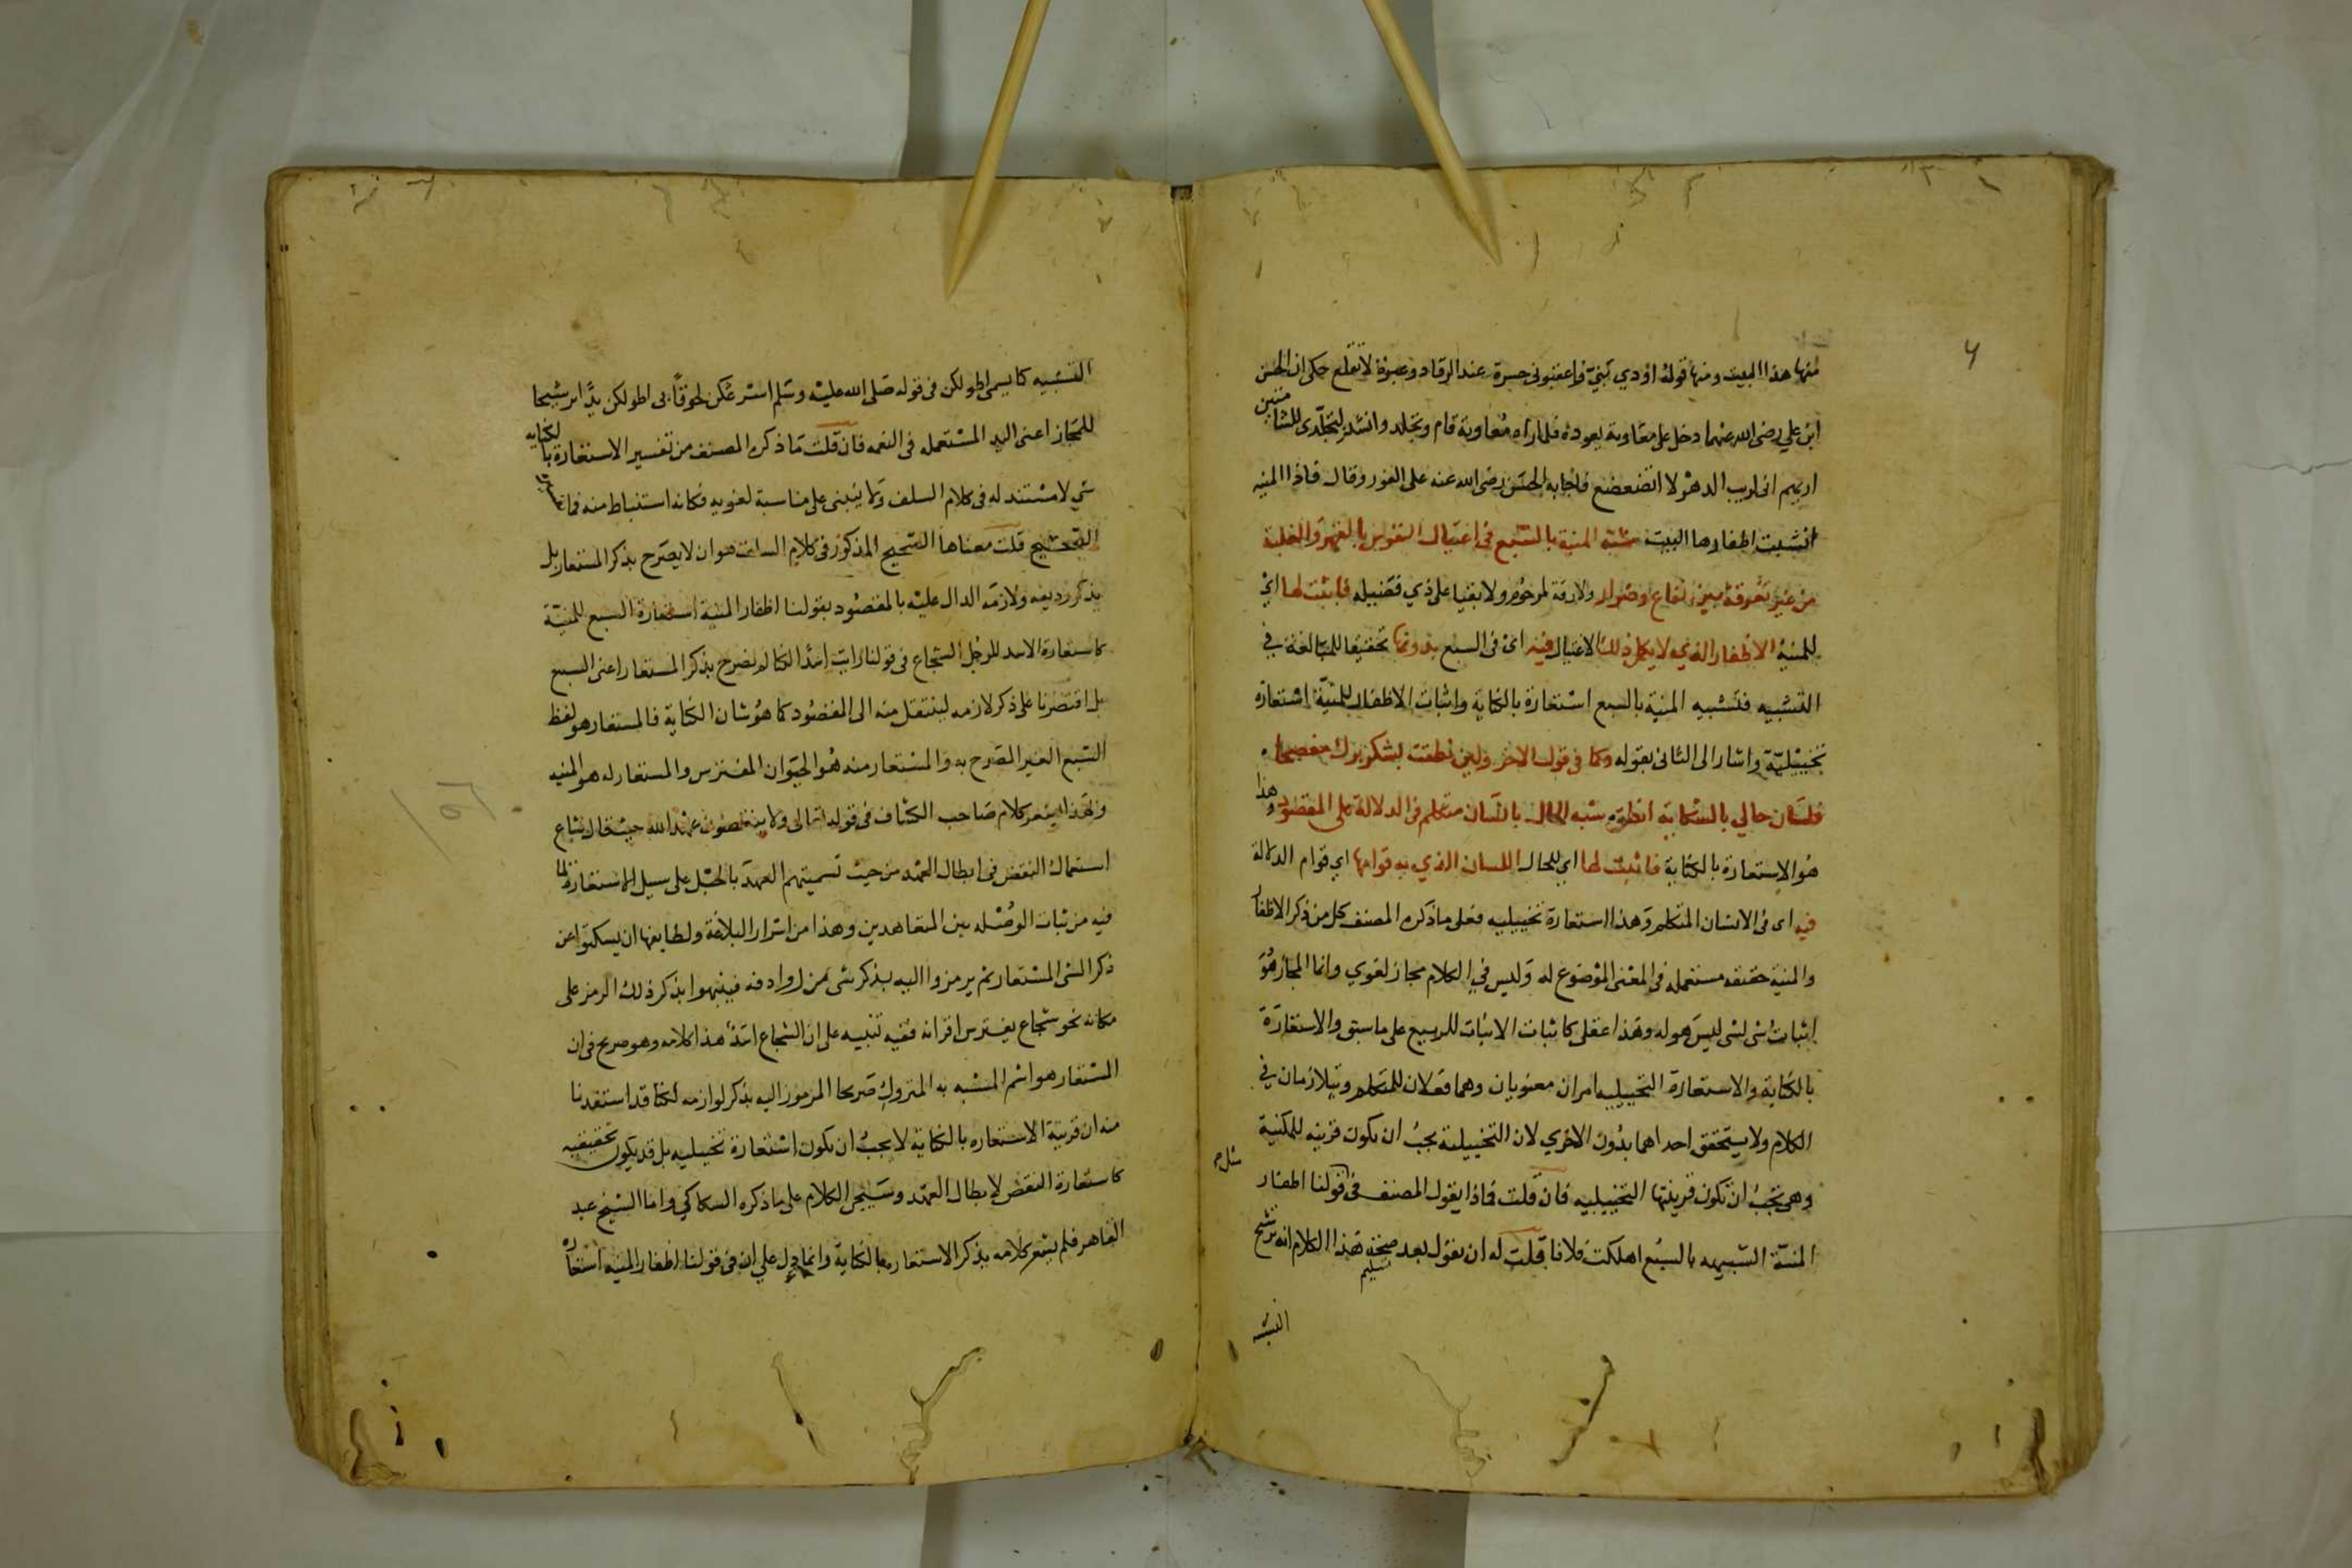 منها هذا البيت ومنها قوله اودي بني واعقبوني حسرة عند الرقاد وعبرة لا تقلع حكى ان الحسن
ابن علي رضى الله عنهما دخل على معاوية يعوده فلما راه معاوية قام وتجلد وانشد لتجلدى للشامتين
اريهم انى لريب الدهر لا اتضعضع فاجابه الحسن رضى الله عنه على الفور وقال واذا المنيه
انشبت اظفارها البيت شبه المنية بالسبع فى اغتيال النفوس بالقهر والغلبة
من غير تفرقة بين نفاع وضرار ولا رقة لمرحوم ولا بقيا على ذي فضيله فاثبت لها اي
للمنية الاظفار التي لا يكمل ذلك الاغتيال فيه اى فى السبع بدونها تحقيقا للمبالغة في
التشبيه فتشبيه المنية بالسبع استعارة بالكناية واثبات الاظفار للمنية استعارة
تخييلية واشار الى الثانى بقوله وكما فى قول الاخر ولئن نطقت بشكر برك مفصحا
فلسان حالي بالشكاية انطق شبه الحال بانسان متكلم فى الدلالة على المقصود وهذا
هو الاستعارة بالكناية فاثبت لها اي للحال اللسان الذي به قوامها اي قوام الدلالة
فيه اى فى الانسان المتكلم وهذا استعارة تخييليه فعلى ما ذكره المصنف كل من ذكر الاظفار
والمنية حقيقه مستعمله فى المعنى الموضوع له وليس في الكلام مجاز لغوي وانما المجاز هو
اثبات شى لشى ليس هو له وهذا عقلى كاثبات الانبات للربيع على ما سبق والاستعارة
بالكناية والاستعارة التخييليه امران معنويان وهما فعلان للمتكلم ويتلازمان في
الكلام ولا يتحقق احداهما بدون الاخري لان التخييلية يجب ان يكون قرينه للمكنية
وهى يجب ان تكون قرينتها التخييليه فان قلت فماذا يقول المصنف فى قولنا اظفار
المنية الشبيهه بالسبع اهلكت فلانا قلت له ان يقول بعد تسليم صحة هذا الكلام انه ترشيح
التشبيه
التشبيه كما يسمى اطولكن فى قوله صلى الله عليه وسلم اسرعكن لحوقا بى اطولكن يدا ترشيحا
للمجاز اعنى اليد المستعمله فى النعمه فان قلت ما ذكره المصنف من تفسير الاستعارة بالكنايه
شي لا مستند له فى كلام السلف ولا يبتنى على مناسبة لغويه فكانه استنباط منه فما
الصحيح قلت معناها الصحيح المذكور فى كلام السلف هو ان لا يصرح بذكر المستعار بل
بذكر رديفه ولازمه الدال عليه بالمقصود بقولنا اظفار المنية استعارة السبع للمنية
كاستعارة الاسد للرجل الشجاع فى قولنا رايت اسدا لكنا لم نصرح بذكر المستعار اعنى السبع
بل اقتصرنا على ذكر لازمه لينتقل منه الى المقصود كما هو شان الكناية فالمستعار هو لفظ
السبع الغير المصرح به والمستعار منه هو الحيوان المفترس والمستعار له هو المنيه
وبهذا يشعر كلام صاحب الكشاف فى قوله تعالى ولا ينقضون عهد الله حيث قال شاع
استعمال النقض فى ابطال العهد من حيث تسميتهم العهد بالحبل على سبيل الاستعارة لما
فيه من ثبات الوصله بين المتعاهدين وهذا من اسرار البلاغة ولطايفها ان يسكتوا عن
ذكر الشى المستعار ثم يرمزوا اليه بذكر شى من روادفه فينبهوا بذكر ذلك الرمز على
مكانه نحو شجاع يفترس اقرانه ففيه تنبيه على ان الشجاع اسد هذا كلامه وهو صريح فى ان
المستعار هو اسم المشبه به المتروك صريحا المرموز اليه بذكر لوازمه لكنا قد استفدنا
منه ان قرينة الاستعاره بالكناية لا يجب ان يكون استعارة تخييليه بل قد يكون تحقيقيه
كاستعارة النقض لابطال العهد وسيجى الكلام على ما ذكره السكاكي واما الشيخ عبد
القاهر فلم يشعر كلامه بذكر الاستعاره بالكناية وانما دل على ان فى قولنا اظفار المنيه استعاره